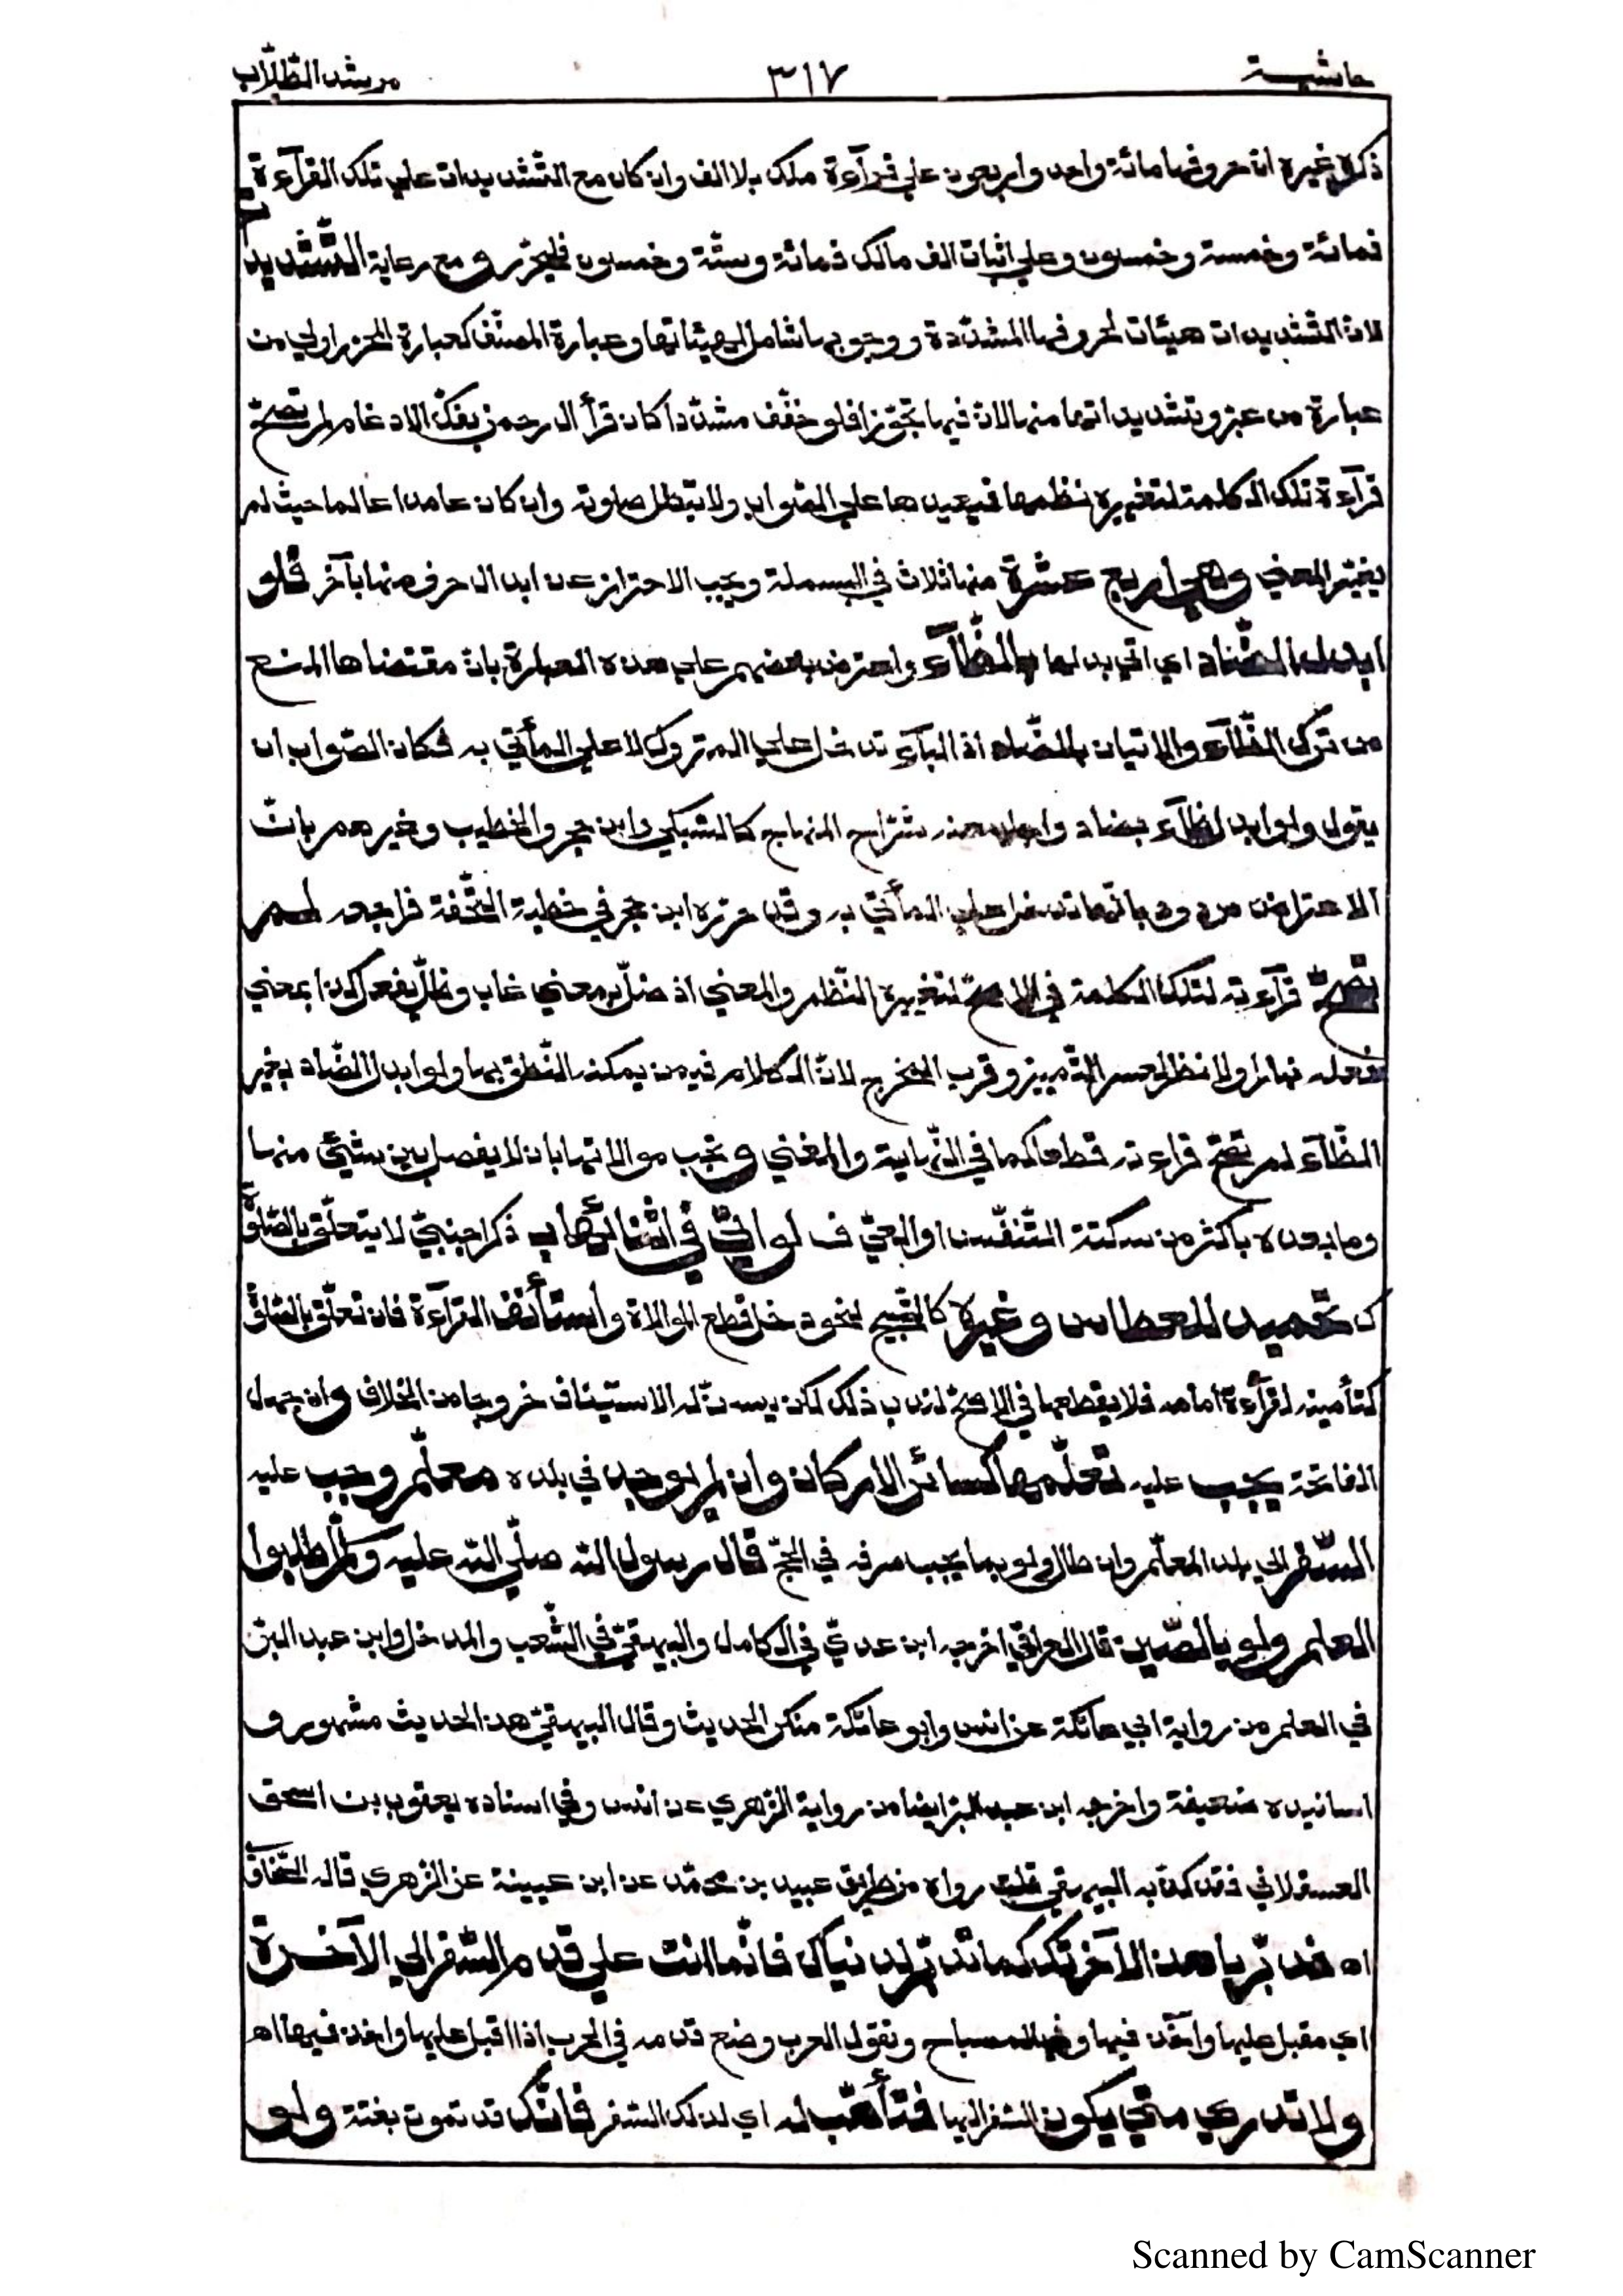 حاشية ٣١٧ مرشد الطّلّاب
ذكره غيره انّ حروفها مائة واحد واربعون علي قرآءة ملك بلا الف وان كان مع التّشديدات علي تلك القرآءة
فمائة وخمسة وخمسون وعلي اثبات الف مالك فمائة وستّة وخمسون فليحرّر و مع رعاية التّشديد
لانّ التّشديدات هيئات لحروفها المشدّدة ووجوبها شامل لهيئاتها وعبارة المصنّف كعبارة المحرّر اولي من
عبارة من عبّر وتشديداتها منها لانّ فيها تجوّزا فلو خفّف مشدّدا كان قرأ الرحمن بفكّ الادغام لم تصحّ
قرآءة تلك الكلمة لتغييره نظمها فيعيدها علي الصّواب ولا تبطل صلوته وان كان عامدا عالما حيث لم
يغيّر المعني وهي اربع عشرة منها ثلاث في البسملة ويجب الاحتراز عن ابدال حرف منها بآخر فلو
ابدل الضّاد اي اتي بدلها بالظّآء واعترض بعضهم علي هذه العبارة بانّ مقتضاها المنع
من ترك الظّآء والاتيان بالضّاد اذ البآء تدخل علي المتروك لا علي المأتي به فكان الصّواب ان
يقول ولو ابدل ظآء بضاد واجاب عنه شرّاح المنهاج كالسّبكي وابن حجر والخطيب وغيرهم بانّ
الاعتراض مردود بانّها تدخل علي المأتيّ به وقد حرّره ابن حجر في خطبة التّحفة فراجعه لم
تصحّ قرآءته لتلك الكلمة في الاصحّ لتغييره النّظم والمعني اذ ضلّ بمعني غاب وظلّ يفعل كذا بمعني
فعله نهارا ولا نظر لعسر التّمييز وقرب المخرج لانّ الكلام فيمن يمكنه النّطق بها ولو ابدل الضّاد بغير
الظّآء لم تصحّ قراءته قطعا كما في النّهاية والمغني و تجب موالاتها بان لا يفصل بين شيئ منها
وما بعده باكثر من سكتة التّنفّس او العيّ ف لو اتيٰ في اثنائها ب ذكر اجنبيّ لا يتعلّق بالصّلوة
ك تحميد للعطاس وغيره كالتّسبيح لنحو دخل قطع الموالاة واستأنف القرآءة فان تعلّق بالصّلوة
كتأمينه لقرآءة امامه فلا يقطعها في الاصحّ لندب ذلك لكن يسنّ له الاستيناف خروجا من الخلاف وان جهل
الفاتحة يجب عليه تعلّمها كسائر الاركان وان لم يوجد في بلده معلّم وجب عليه
السّفر الي بلد المعلّم وان طال ولو بما يجب صرفه في الحجّ قال رسول اللّه صلّي اللّه عليه وسلّم اطلبوا
العلم ولو بالصّين قال العراقي اخرجه ابن عديّ في الكامل والبيهقيّ في الشّعب والمدخل وابن عبد البرّ
في العلم من رواية ابي عاتكة عن انس وابو عاتكة منكر الحديث وقال البيهقيّ هذا الحديث مشهور و
اسانيده ضعيفة واخرجه ابن عبد البرّ ايضا من رواية الزّهري عن انس وفي اسناده يعقوب بن اسحق
العسقلاني فقد كذّبه البيهقي قلت رواه من طريق عبيد بن محمّد عن ابن عيينة عن الزّهري قاله
اه فدبّر يا هذا لآخرتك كما تدبّر لدنياك فانّما انت علي قدم السّفر الي الآخرة
اي مقبل عليها وآخذ فيها وفي المصباح وتقول العرب وضع قدمه في الحرب اذا اقبل عليها واخذ فيها اه
ولا تدري متي يكون السّفر اليها فتأهّب له اي لذلك السّفر فانّك قد تموت بغتة ولو
Scanned by CamScanner